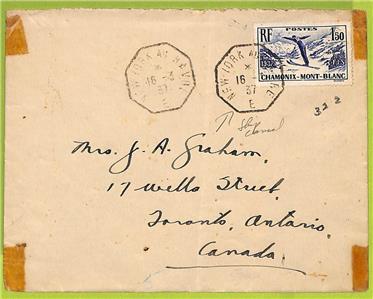 NEW YORK AU HAVRE
*
16 - 3
37
E
NEW YORK AU
16 -
37
E
RF POSTES 1,50
CHAMONIX-MONT-BLANC
322
↑ Ship
cancel
Mrs. J. A. Graham,
17 Wells Street,
Toronto, Ontario,
Canada.